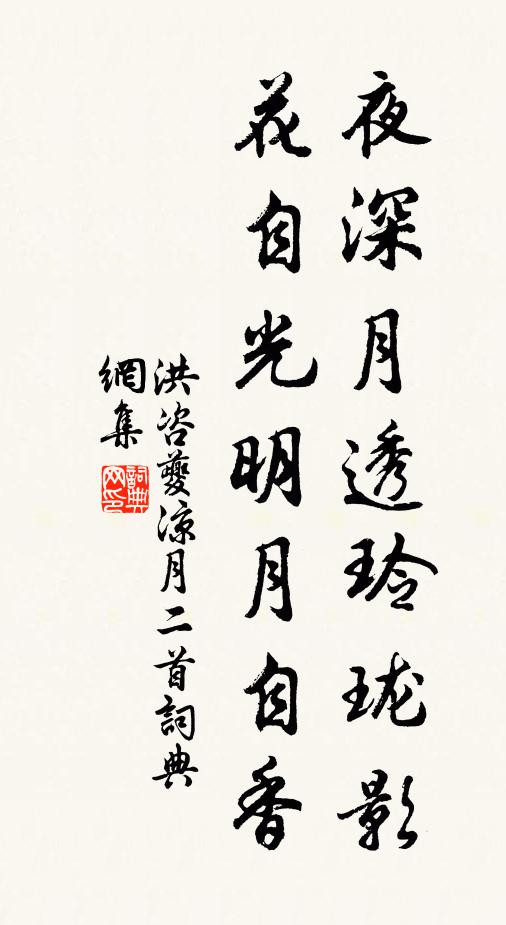 夜深月透玲珑影
花自光明月自香
洪咨夔涼月二首詞典
網集
詞典網印